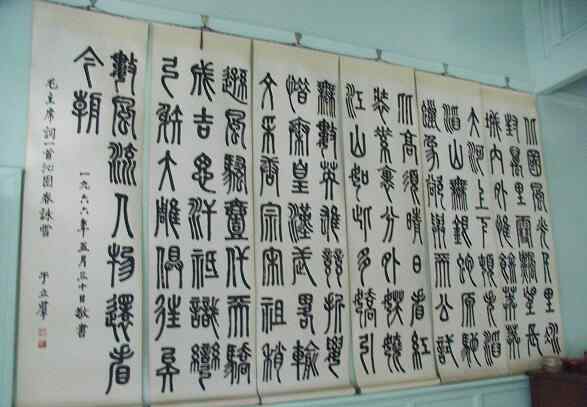 北國風光千里冰
封萬里雪飄望長
城內外惟餘莽莽
大河上下頓失滔
滔山舞銀蛇原馳
蠟象欲與天公試
比高須晴日看紅
裝素裹分外妖嬈
江山如此多嬌引
無數英雄競折腰
惜秦皇漢武略輸
文采唐宗宋祖稍
遜風騷壹代天驕
成吉思汗祇識彎
弓射大雕俱往矣
數風流人物還看
今朝
一九六六年五月三十日敬書
毛主席詞一首沁園春詠雪
于立群